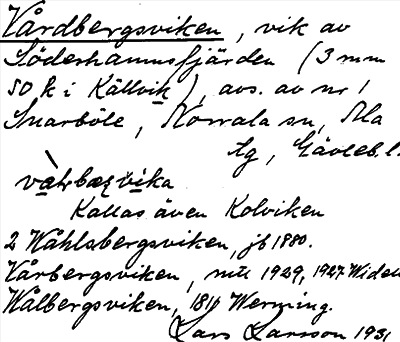 Vårdbergsviken, vik av
Söderhamnsfjärden (3 mm
SO k i Källvik), avs. av nr 1
Snarböle, Norrala sn, Ala
tg, Gävleb. l.
Kallas även Kolviken
2 Wåhlsbergsviken, jb 1880.
Vårbergsviken, 1929, 1927 Widell
Walbergsviken, 181 Werming.
Lars Larsson 1931